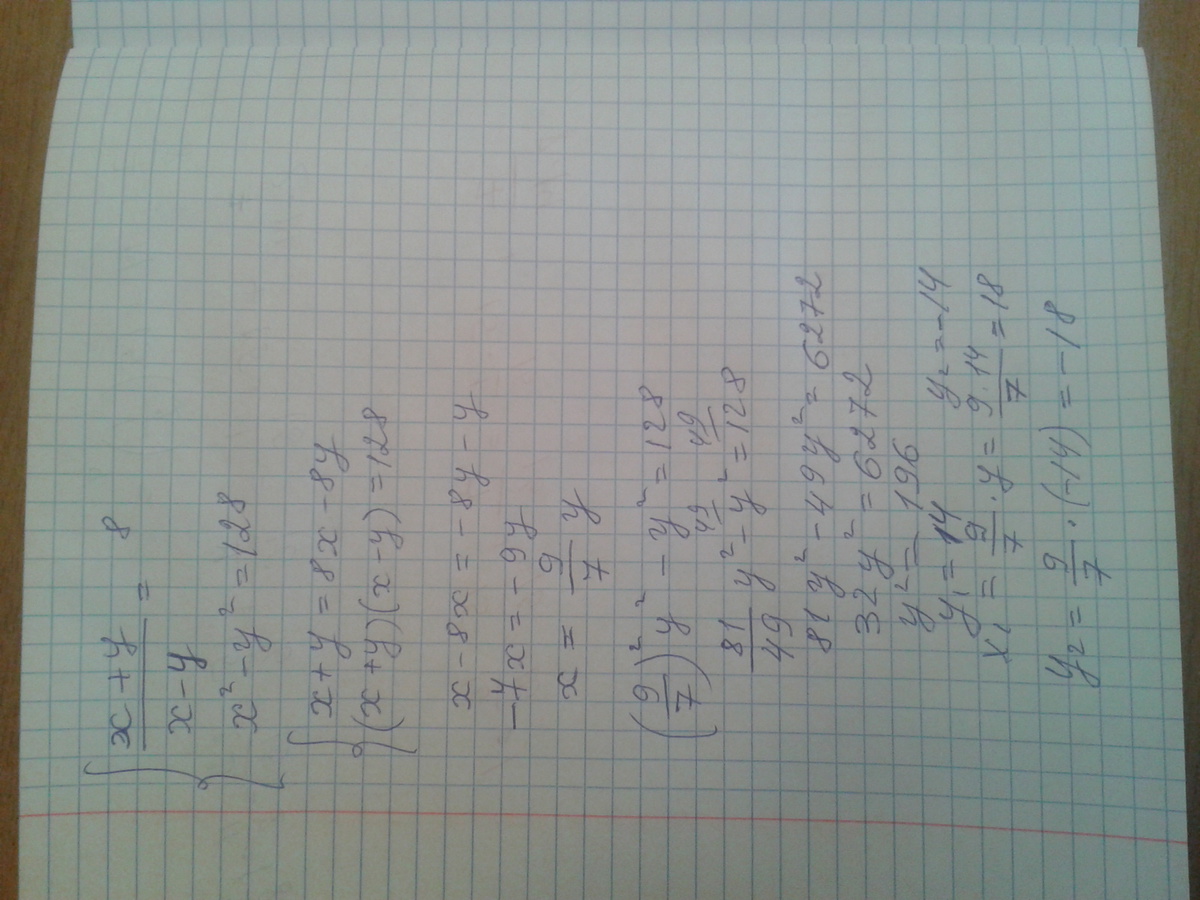 x+y/x-y = 8
x²-y²=128
x+y=8x-8y
(x+y)(x-y)=128
x-8x=-8y-y
-7x=-9y
x=9/7 y
(9/7)² y²-y²=128
81/49 y²-y² 49/49=128 49/
81y²-49y²=6272
32y²=6272
y²=196
y₁=14 y₂=-14
x₁=9/7·y=9·14/7=18
y₂=9/7·(-14)=-18